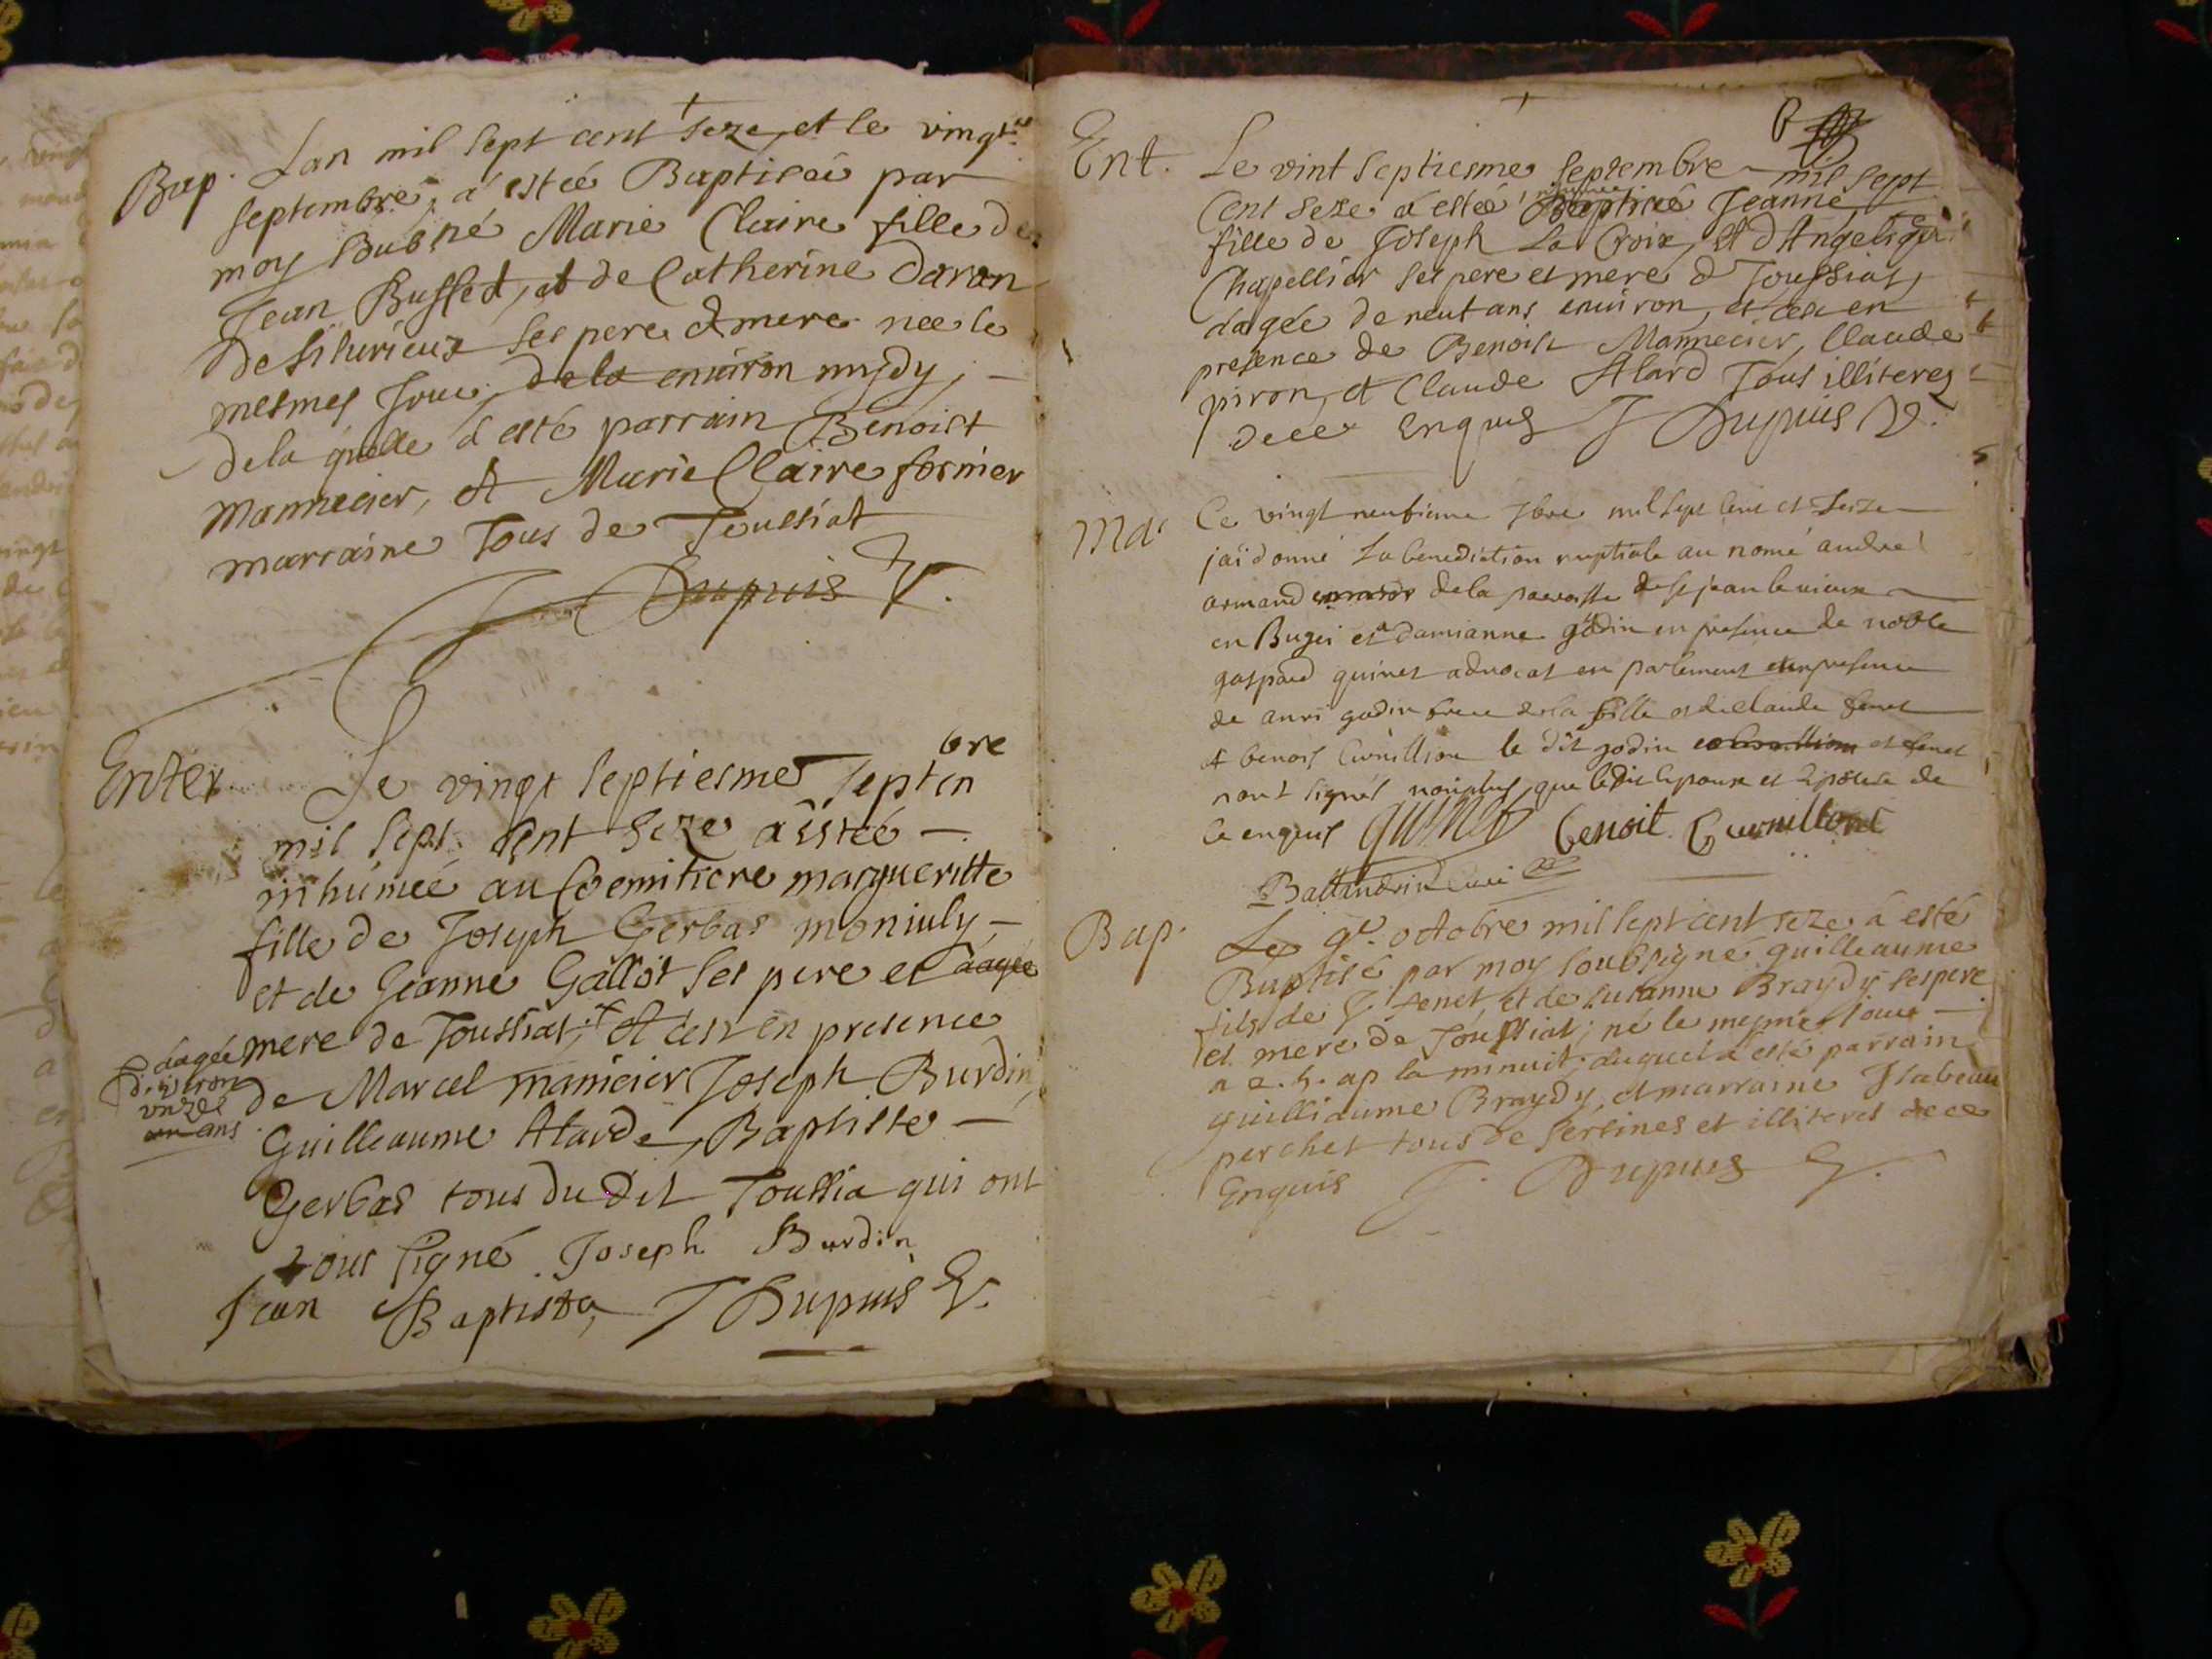 Bap. Lan mil sept cent seze, et le vingt
septembre, a estée Baptisée par
moy soubsné Marie Claire fille de
Jean Busset, et de Catherine Daron
ses pere et mere née le
mesmes Jour, dela environ mydy,
dela quelle a esté parrain Benoist
Mannecier, et Marie Claire fornier
marraine Tous de Toussiat
J Dupuis V.
Enter Le vingt septiesme septembre
mil sept cent seze a estée
inhumée au Coemitiere margueritte
fille de Joseph Gerbas moniuly
et de Jeanne Gallot ses pere et aagée
mere de Toussiat, et cest en presence
dagée
d'environ
ans
de Marcel manicier Joseph Burdin,
Guilleaume Alarde, Baptiste
Gerbas tous du dit Toussia qui ont
tous signé. Joseph Burdin
Jean Baptista, J Dupuis V.
Ent. Le vint septiesme septembre mil sept
cent seze a estée inhumée Baptisée Jeanne
fille de Joseph La Croix, et d'Angelique
Chapellier ses pere et mere d Toussiat,
dagée de neuf ans environ, et cest en
presence de Benoist Mannecier, Claude
piron, et Claude Alard Tous illiteres
dece Enquis J Dupuis V.
Mar Ce vingt neufieme 7bre mil sept cent et seize
jai donné la benediction nuptiale au nomé andre
armand dela paroisse de st jean le vieux
en Bugei et a damianne godin en presence de noble
gaspard quinet advocat en parlement et en presence
de anri godin frere de la fille et de claude fenet
et benoit Curnillion le dit godin et fenet
nont signés non plus que le dit Epoux et Epouse de
ce enquis quinet benoit Curnillond
Ballandrin curé
Bap. Le 9e. octobre mil sept cent seze a esté
Baptisé par moy soubsigné guilleaume
fils de J. fenet, et de susanne Braydy ses pere
et mere de Toussiat; né le mesme Jour
a 2. h. ap la minuit, duquel a esté parrain
guilliaume Braydy, et marraine Isabeau
perchet tous de Sersines et illiteres dece
Enquis J. Dupuis V.